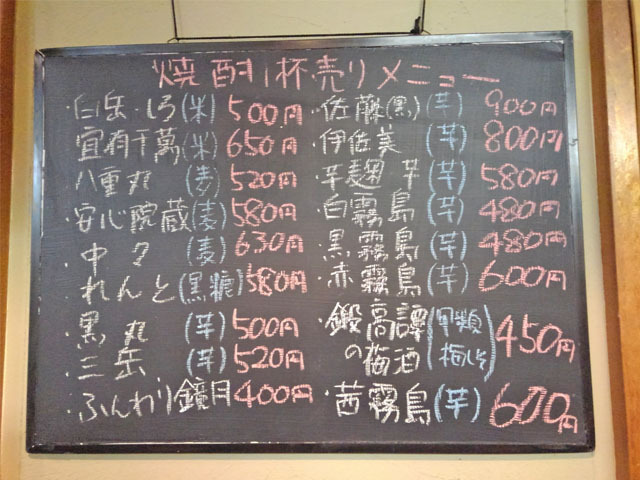 焼酎1杯売りメニュー
・白岳しろ(米)500円
宜有千萬(米)650円
八重丸(麦)520円
・安心院蔵(麦)580円
・中々(麦)630円
・れんと(黒糖)580円
・黒丸(芋)500円
・三岳(芋)520円
・ふんわり鏡月400円
・佐藤(黒)(芋)900円
・伊佐美(芋)800円
・芋麹芋(芋)580円
・白霧島(芋)480円
・黒霧島(芋)480円
・赤霧島(芋)600円
・鍛高譚(甲類
の梅酒 梅しそ)450円
・茜霧島(芋)600円